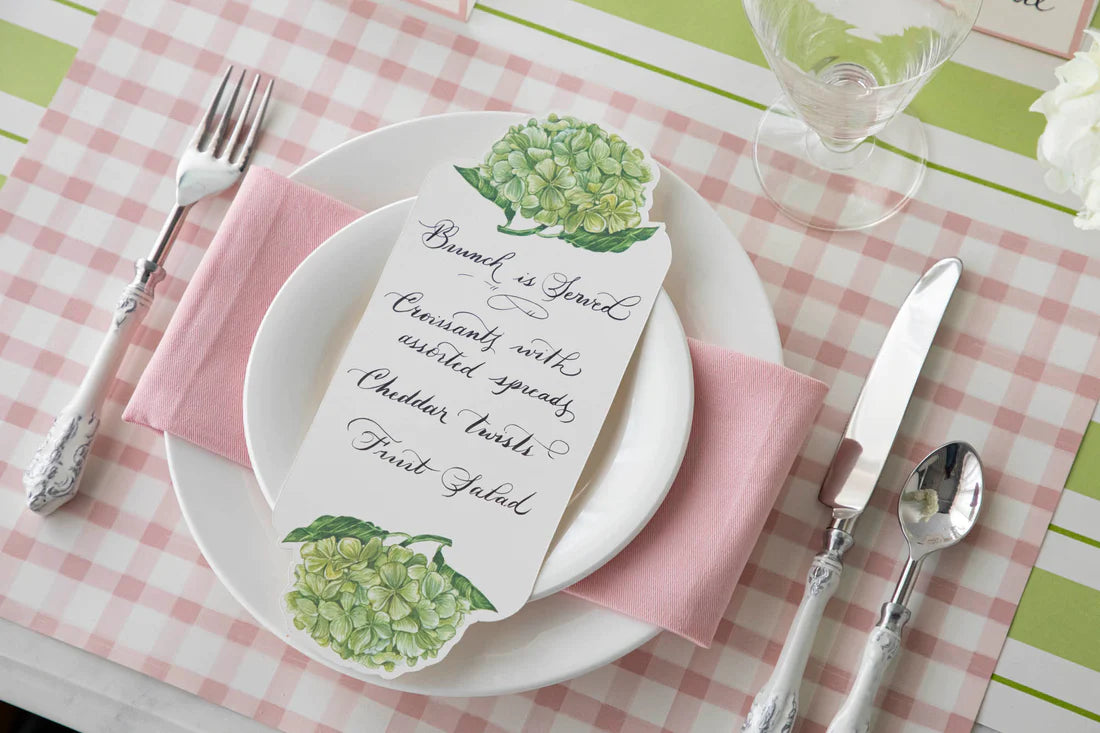 Brunch is Served
Croissants with
assorted spreads
Cheddar twists
Fruit Salad